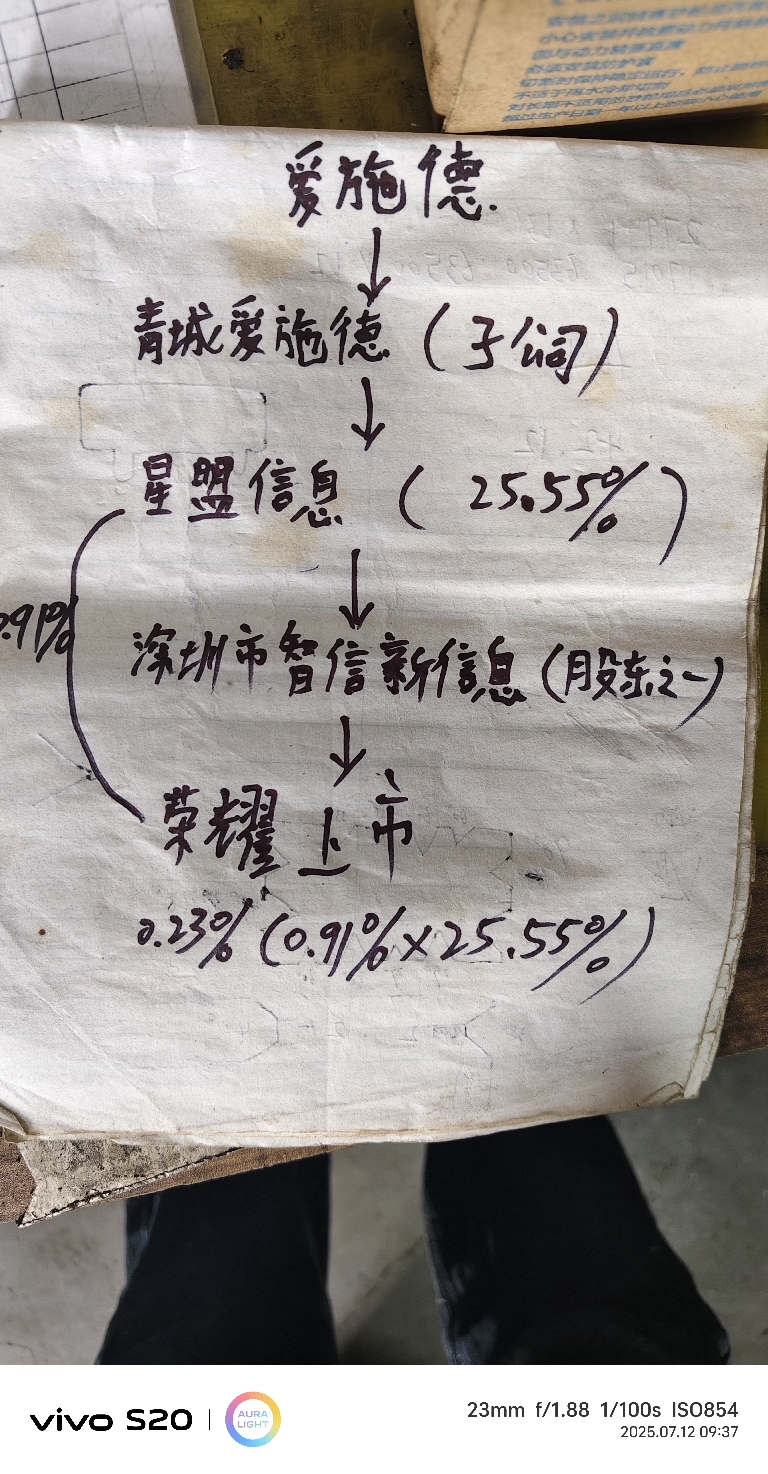 爱施德.
↓
青城爱施德(子公司)
↓
星盟信息(25.55%)
↓
.91%
深圳市智信新信息(股东之一)
↓
荣耀上市
0.23%(0.91%×25.55%)
vivo S20
AURA LIGHT
23mm f/1.88 1/100s ISO854
2025.07.12 09:37